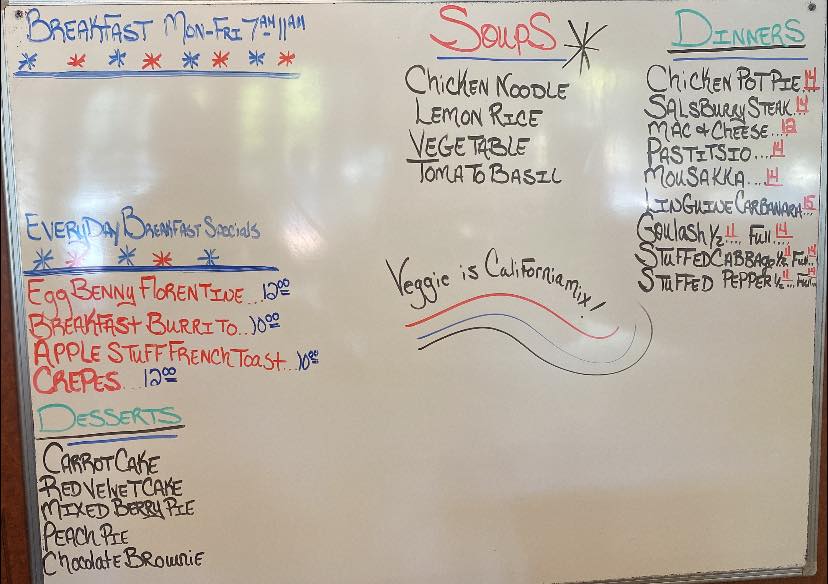 BREAKFAST MON-FRI 7AM 11AM
EVERYDAY BREAKFAST SPECIALS
EGG BENNY FLORENTINE...12.00
BREAKFAST BURRITO...10.00
APPLE STUFF FRENCH TOAST...10.00
CREPES...12.00
DESSERTS
CARROT CAKE
RED VELVET CAKE
MIXED BERRY PIE
PEACH PIE
CHOCOLATE BROWNIE
SOUPS
CHICKEN NOODLE
LEMON RICE
VEGETABLE
TOMATO BASIL
Veggie is California mix!
DINNERS
CHICKEN POT PIE...14
SALSBURRY STEAK...14
MAC & CHEESE...12
PASTITSIO...14
MOUSAKKA...14
LINGUINE CARBANARA...15
GOULASH 1/2...11 FULL...14
STUFFED CABBAGE 1/2...11 FULL...14
STUFFED PEPPER 1/2...11 FULL...14